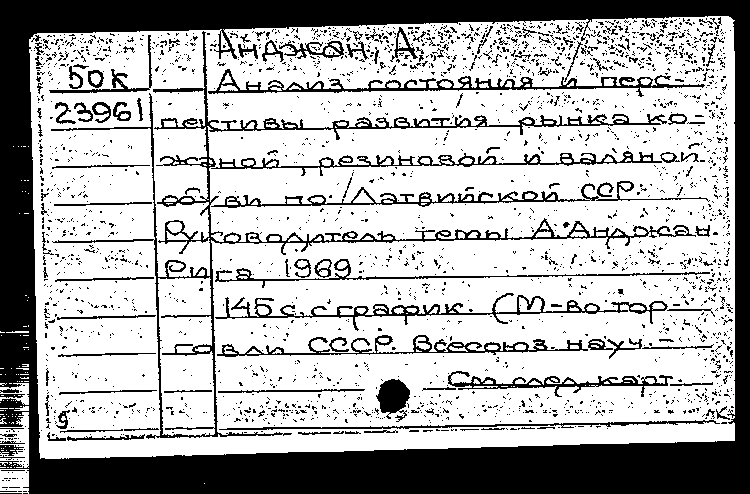 Анджан, А.
50к Анализ состояния и перс-
23961 пективы развития рынка ко-
жаной, резиновой и валяной
обуви по Латвийской ССР.
Руководитель темы А. Анджан.
Рига, 1969.
145 с. с график. (М-во тор-
говли СССР. Всесоюз. науч.-
См. след. карт.
9